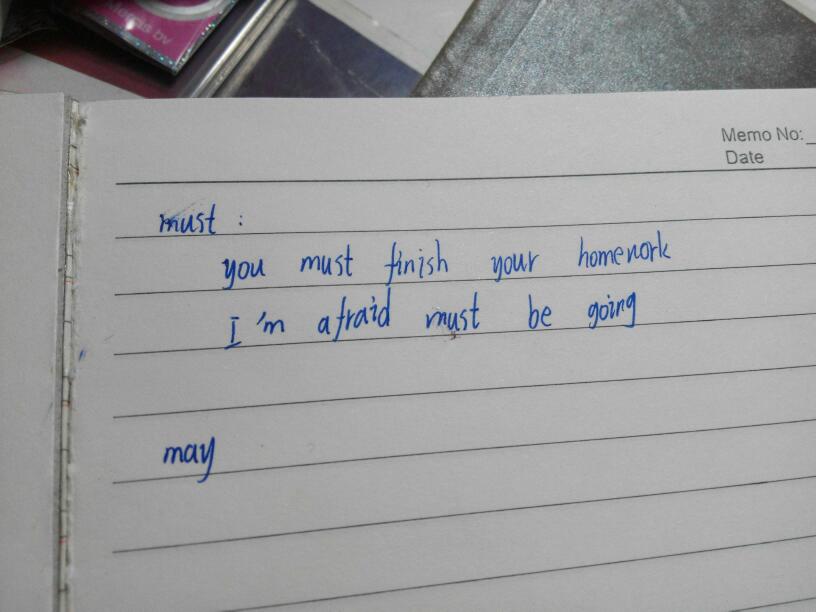 Memo No:
Date
must :
you must finish your homework
I'm afraid must be going
may